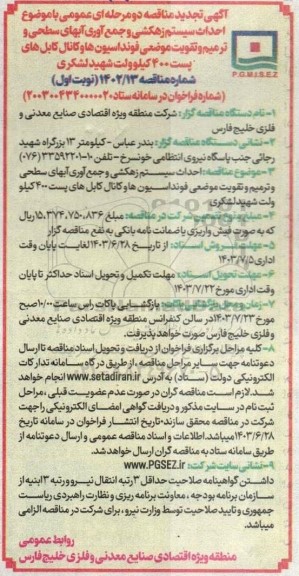 آگهی تجدید مناقصه دو مرحله ای عمومی با موضوع
احداث سیستم زهکشی و جمع آوری آبهای سطحی و
ترمیم و تقویت موضعی فونداسیون ها و کانال کابل های
پست ۴۰۰ کیلو ولت شهید لشگری
شماره مناقصه ۱۴۰۲/۱۳ (نوبت اول)
(شماره فراخوان در سامانه ستاد ۲۰۰۳۰۰۴۳۴۰۰۰۰۰۲۰)
P.G.M.I.S.E.Z
۱- نام دستگاه مناقصه گزار: شرکت منطقه ویژه اقتصادی صنایع معدنی و
فلزی خلیج فارس
۲- نشانی دستگاه مناقصه گزار: بندر عباس - کیلومتر ۱۳ بزرگراه شهید
رجائی جنب پاسگاه نیروی انتظامی خونسرخ - تلفن ۱۰-۳۳۵۹۲۲۰۱ (۰۷۶)
۳- موضوع مناقصه: احداث سیستم زهکشی و جمع آوری آبهای سطحی
و ترمیم و تقویت موضعی فونداسیون ها و کانال کابل های پست ۴۰۰ کیلو
ولت شهید لشگری
شرکت در مناقصه: مبلغ ۱۵,۳۷۴,۷۵۰,۸۳۶ ریال
که به صورت فیش واریزی یا ضمانت نامه بانکی به نفع مناقصه گزار
۵- مهلت فروش اسناد: از تاریخ ۱۴۰۳/۶/۲۸ لغایت پایان وقت
اداری ۱۴۰۳/۷/۵
۶- مهلت تحویل اسناد: مهلت تکمیل و تحویل اسناد حداکثر تا پایان
وقت اداری مورخ ۱۴۰۳/۷/۲۲
۷- زمان و محل بازگشایی پاکات: بازگشایی پاکات راس ساعت ۱۰/۰۰ صبح
مورخ ۱۴۰۳/۷/۲۳ در سالن کنفرانس منطقه ویژه اقتصادی صنایع معدنی
و فلزی خلیج فارس صورت خواهد پذیرفت.
۸- کلیه مراحل برگزاری فراخوان از دریافت و تحویل اسناد مناقصه تا ارسال
دعوتنامه جهت سایر مراحل مناقصه، از طریق درگاه سامانه تدارکات
الکترونیکی دولت (ستاد) به آدرس www.setadiran.ir انجام خواهد
شد. لازم است مناقصه گران در صورت عدم عضویت قبلی، مراحل
ثبت نام در سایت مذکور و دریافت گواهی امضای الکترونیکی را جهت
شرکت در مناقصه محقق سازند. تاریخ انتشار فراخوان در سامانه تاریخ
۱۴۰۳/۶/۲۸ میباشد. اطلاعات و اسناد مناقصه عمومی و ارسال دعوتنامه از
طریق سامانه ستاد به مناقصه گران ارسال خواهد شد.
۹- نشانی سایت شرکت: www.PGSEZ.ir
داشتن گواهینامه صلاحیت حداقل ۳ رتبه انتقال نیرو و رتبه ۳ ابنیه از
سازمان برنامه بودجه، معاونت برنامه ریزی و نظارت راهبردی ریاست
جمهوری و تایید صلاحیت توسط وزارت نیرو، برای شرکت در مناقصه الزامی
میباشد.
روابط عمومی
منطقه ویژه اقتصادی صنایع معدنی و فلزی خلیج فارس